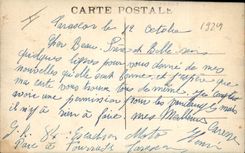 CARTE POSTALE
Tarascon le 12 Octobre 1929
Cher Beau-Frère et Belle-Sœur
quelques lignes pour vous donné de mes
nouvelles qu'elle sont bonne, et j'espère que
ma carte vous trouve tous de même.
avoir une permission pour
il n'y a rien à faire, mes Meilleurs
Henri
Escadron Moto
Parc à Fourrage Tarascon